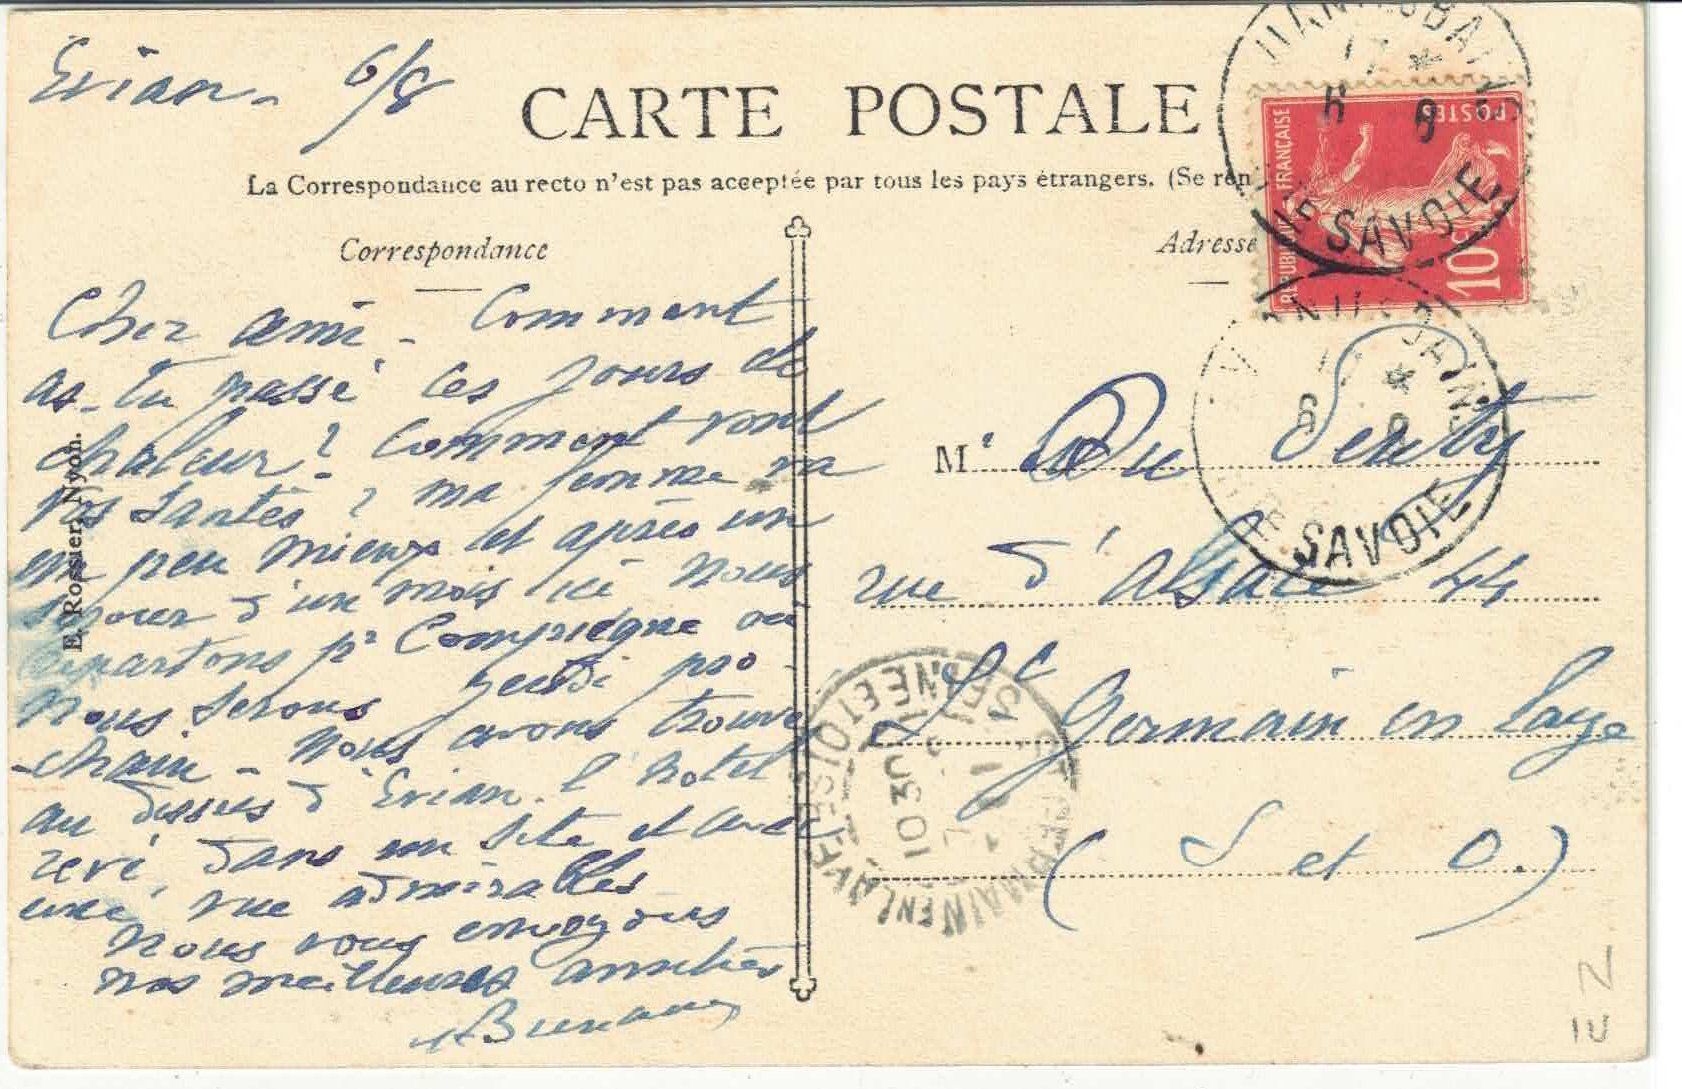 Evian - 6/8
CARTE POSTALE
La Correspondance au recto n'est pas acceptée par tous les pays étrangers. (Se ren
Correspondance
Adresse
Cher ami - Comment
as-tu passé les jours de
chaleur? Comment vont
vos santés? ma femme va
un peu mieux et après un
séjour d'un mois ici nous
repartons pr Compiègne où
nous serons jeudi pro-
-chain - Nous avons trouvé
au dessus d'Evian l'hotel
revé, dans un site et avec
une vue admirables
Nous vous envoyons
nos meilleures amitiés
E. Rossier, Nyon.
Mr Du
rue d'Alsace 44
St Germain en Laye
(S et O.)
REPUBLIQUE FRANÇAISE
POSTES
10c
SAVOIE
SAVOIE
SEINE ET OISE
10 30